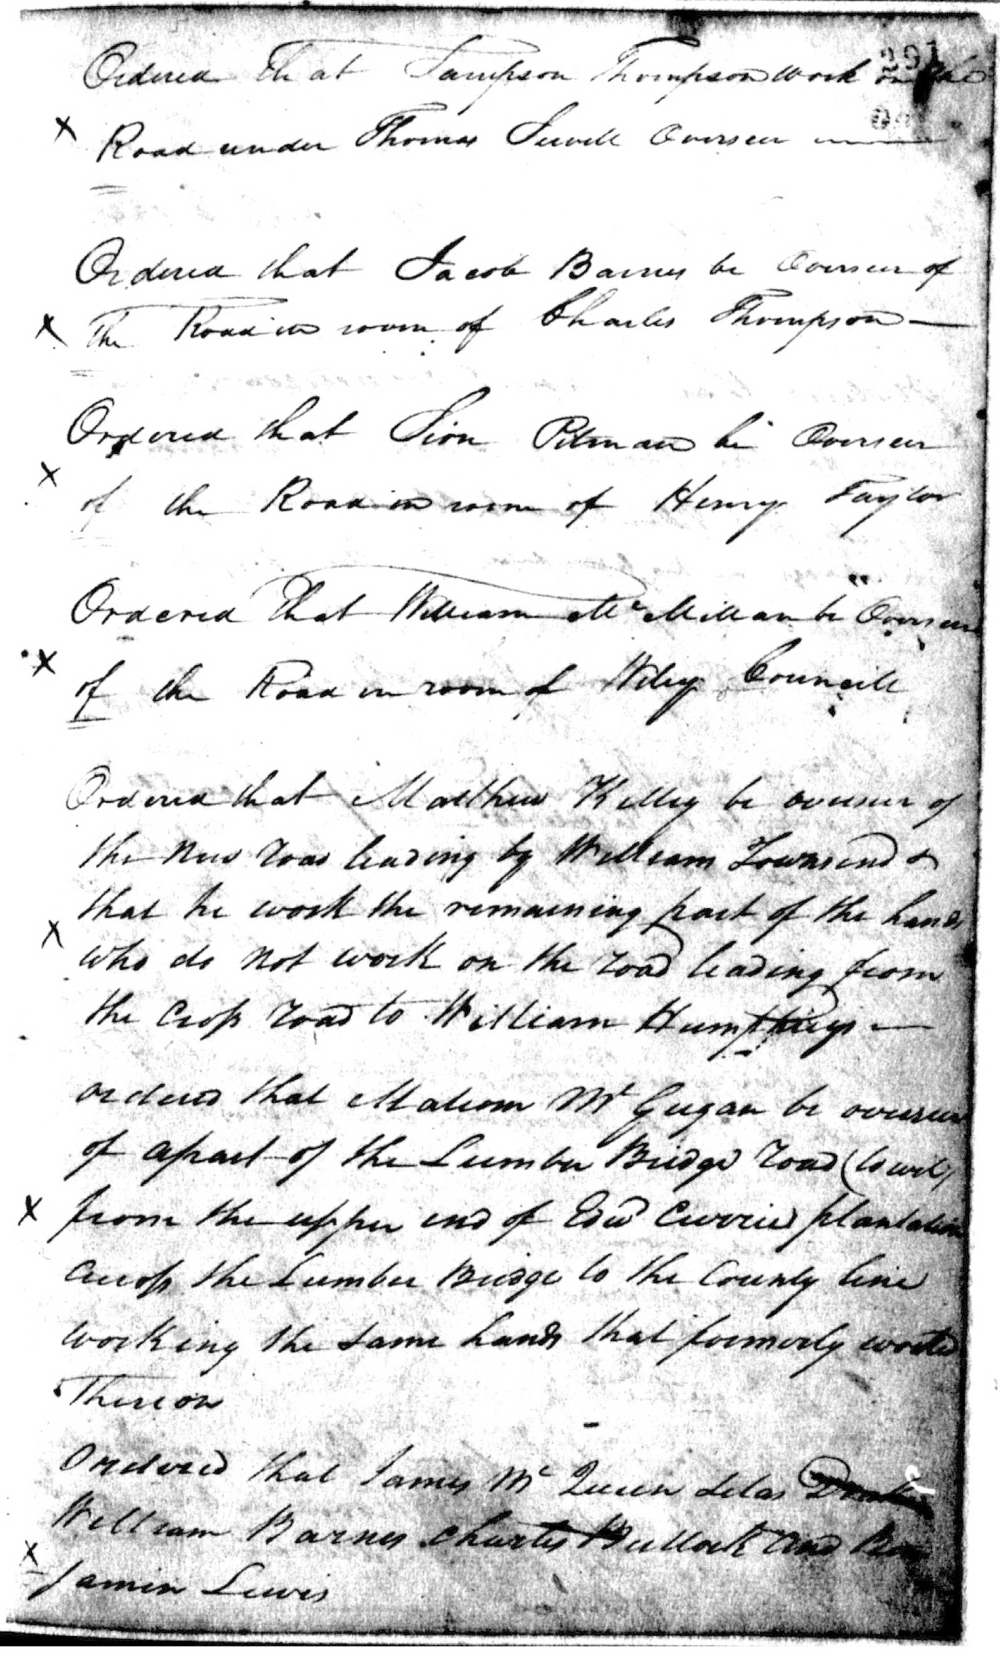 291
Ordered That Sampson Thompson work on the
x Road under Thomas Sewell Overseer
Ordered that Jacob Barnes be Overseer of
x The Road in room of Charles Thompson —
Ordered that Sion Pitman be Overseer
x of the Road in room of Henry Taylor
Ordered That William Mc Millan be Overseer
x of the Road in room of Wiley Councill
Ordered that Matthew Kelley be overseer of
the New road leading by William Townsend &
that he work the remaining part of the hands
x who do not work on the road leading from
the Cross road to William Humphreys —
ordered that Malcom Mc Gugan be overseer
of apart of the Lumber Bridge road (to wit)
x from the upper end of Edwd Curries plantation
across the Lumber Bridge to the County line
working the same hands that formerly worked
Thereon
Ordered that James Mc Queen Silas
William Barnes Charles Bullock and Ben
x jamin Lewis